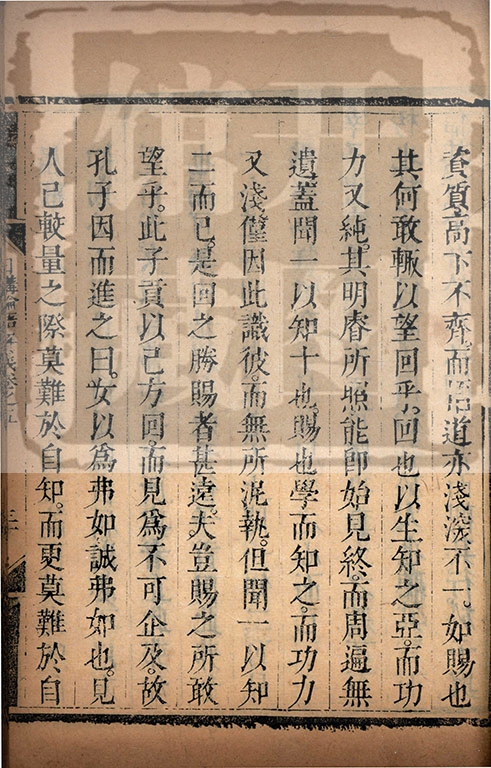 資質高下不齊而聞道亦淺深不一如賜也
其何敢輙以望回乎回也以生知之亞而功
力又純其明睿所照能即始見終而周遍無
遺葢聞一以知十也賜也學而知之而功力
又淺僅因此識彼而無所泥執但聞一以知
二而已是回之勝賜者甚遠夫豈賜之所敢
望乎此子貢以己方回而見為不可企及故
孔子因而進之曰女以為弗如誠弗如也見
人己較量之際莫難於自知而更莫難於自
日講論語